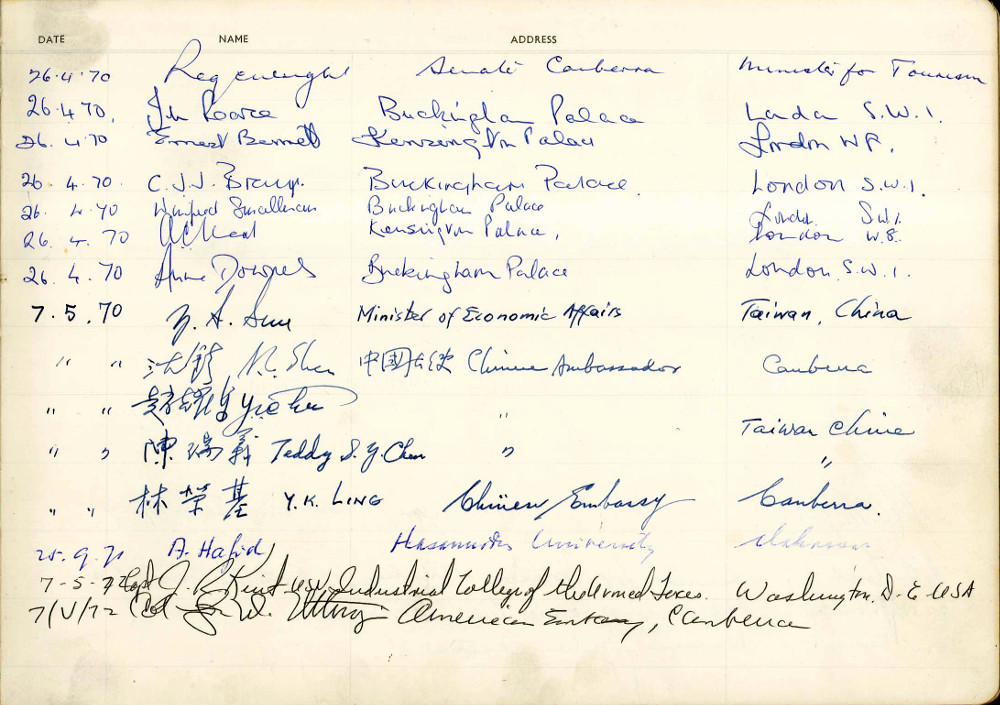 DATE NAME ADDRESS
26.4.70 Reg Senate Canberra Minister for Tourism
26.4.70. Buckingham Palace London S.W.1.
26.4.70 Ernest Bennett Kensington Palace London W8.
26.4.70. C.J.J. Buckingham Palace. London S.W.1.
26.4.70 Winifred Smallman Buckingham Palace London S.W.1.
26.4.70 Kensington Palace, London W.8.
26.4.70 Anne Buckingham Palace London S.W.1.
7.5.70 Y. S. Sun Minister of Economic Affairs Taiwan, China
" " 沈錡 Shen 中國大使 Chinese Ambassador Canberra
" " 趙耀 "
Taiwan China
" " 陳瑞義 Teddy S. Y. Chen " "
" " 林榮基 Y.K. LING Chinese Embassy Canberra.
25.9.71 A. Hafid Hasanuddin University
7-5-72 Capt J. R. USN, Industrial College of the Armed Forces. Washington, D.C. USA
7/V/72 Col American Embassy, Canberra